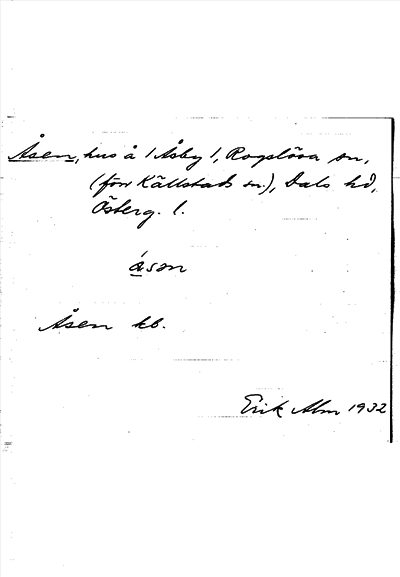 Åsen, hus å /Åsby/, Rogslösa sn,
(förr Källstads sn.), Dals hd,
Österg. l.
åsən
Åsen kb.
Erik Alm 1932